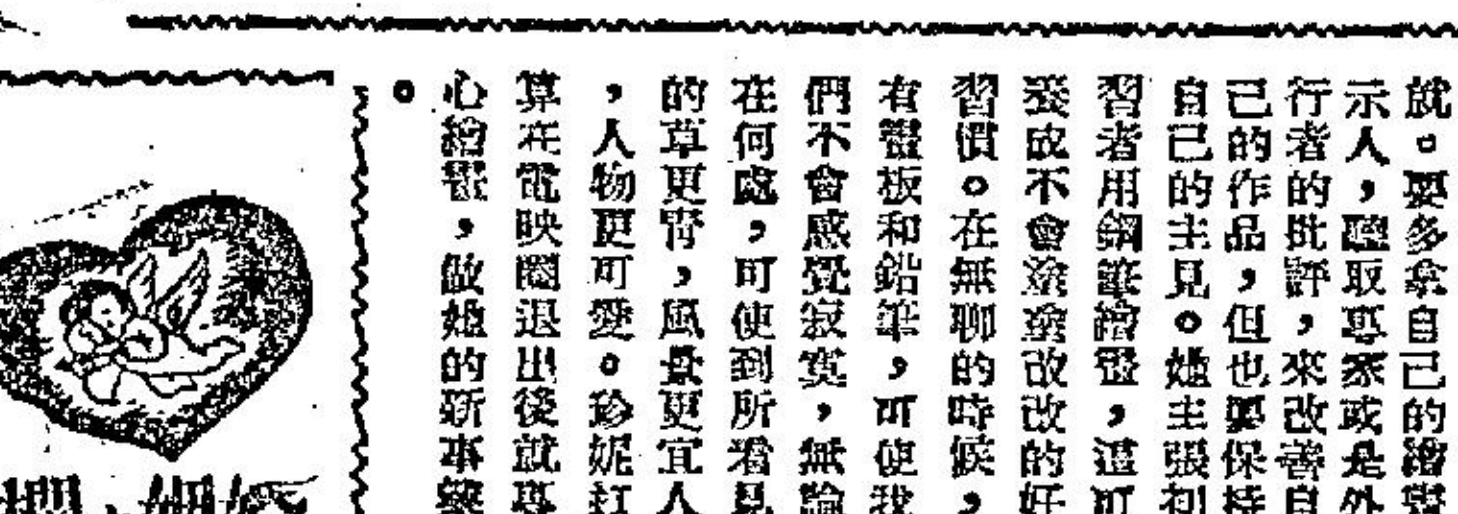 就。要多拿自己的繪畫
示人，聽取專家或是外
行者的批評，來改善自
己的作品，但也要保持
自己的主見。她主張初
習者用鋼筆繪畫，這可
養成不會塗塗改改的好
習慣。在無聊的時候，
有畫板和鉛筆，可使我
們不會感覺寂寞，無論
在何處，可使到所看見
的草更青，風景更宜人
，人物更可愛。珍妮打
算在電映圈退出後就專
心繪畫，做她的新事業
。